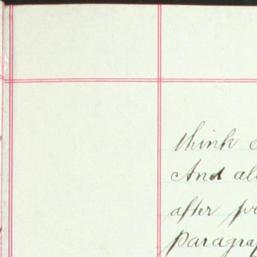 think
And al
after
Paragra